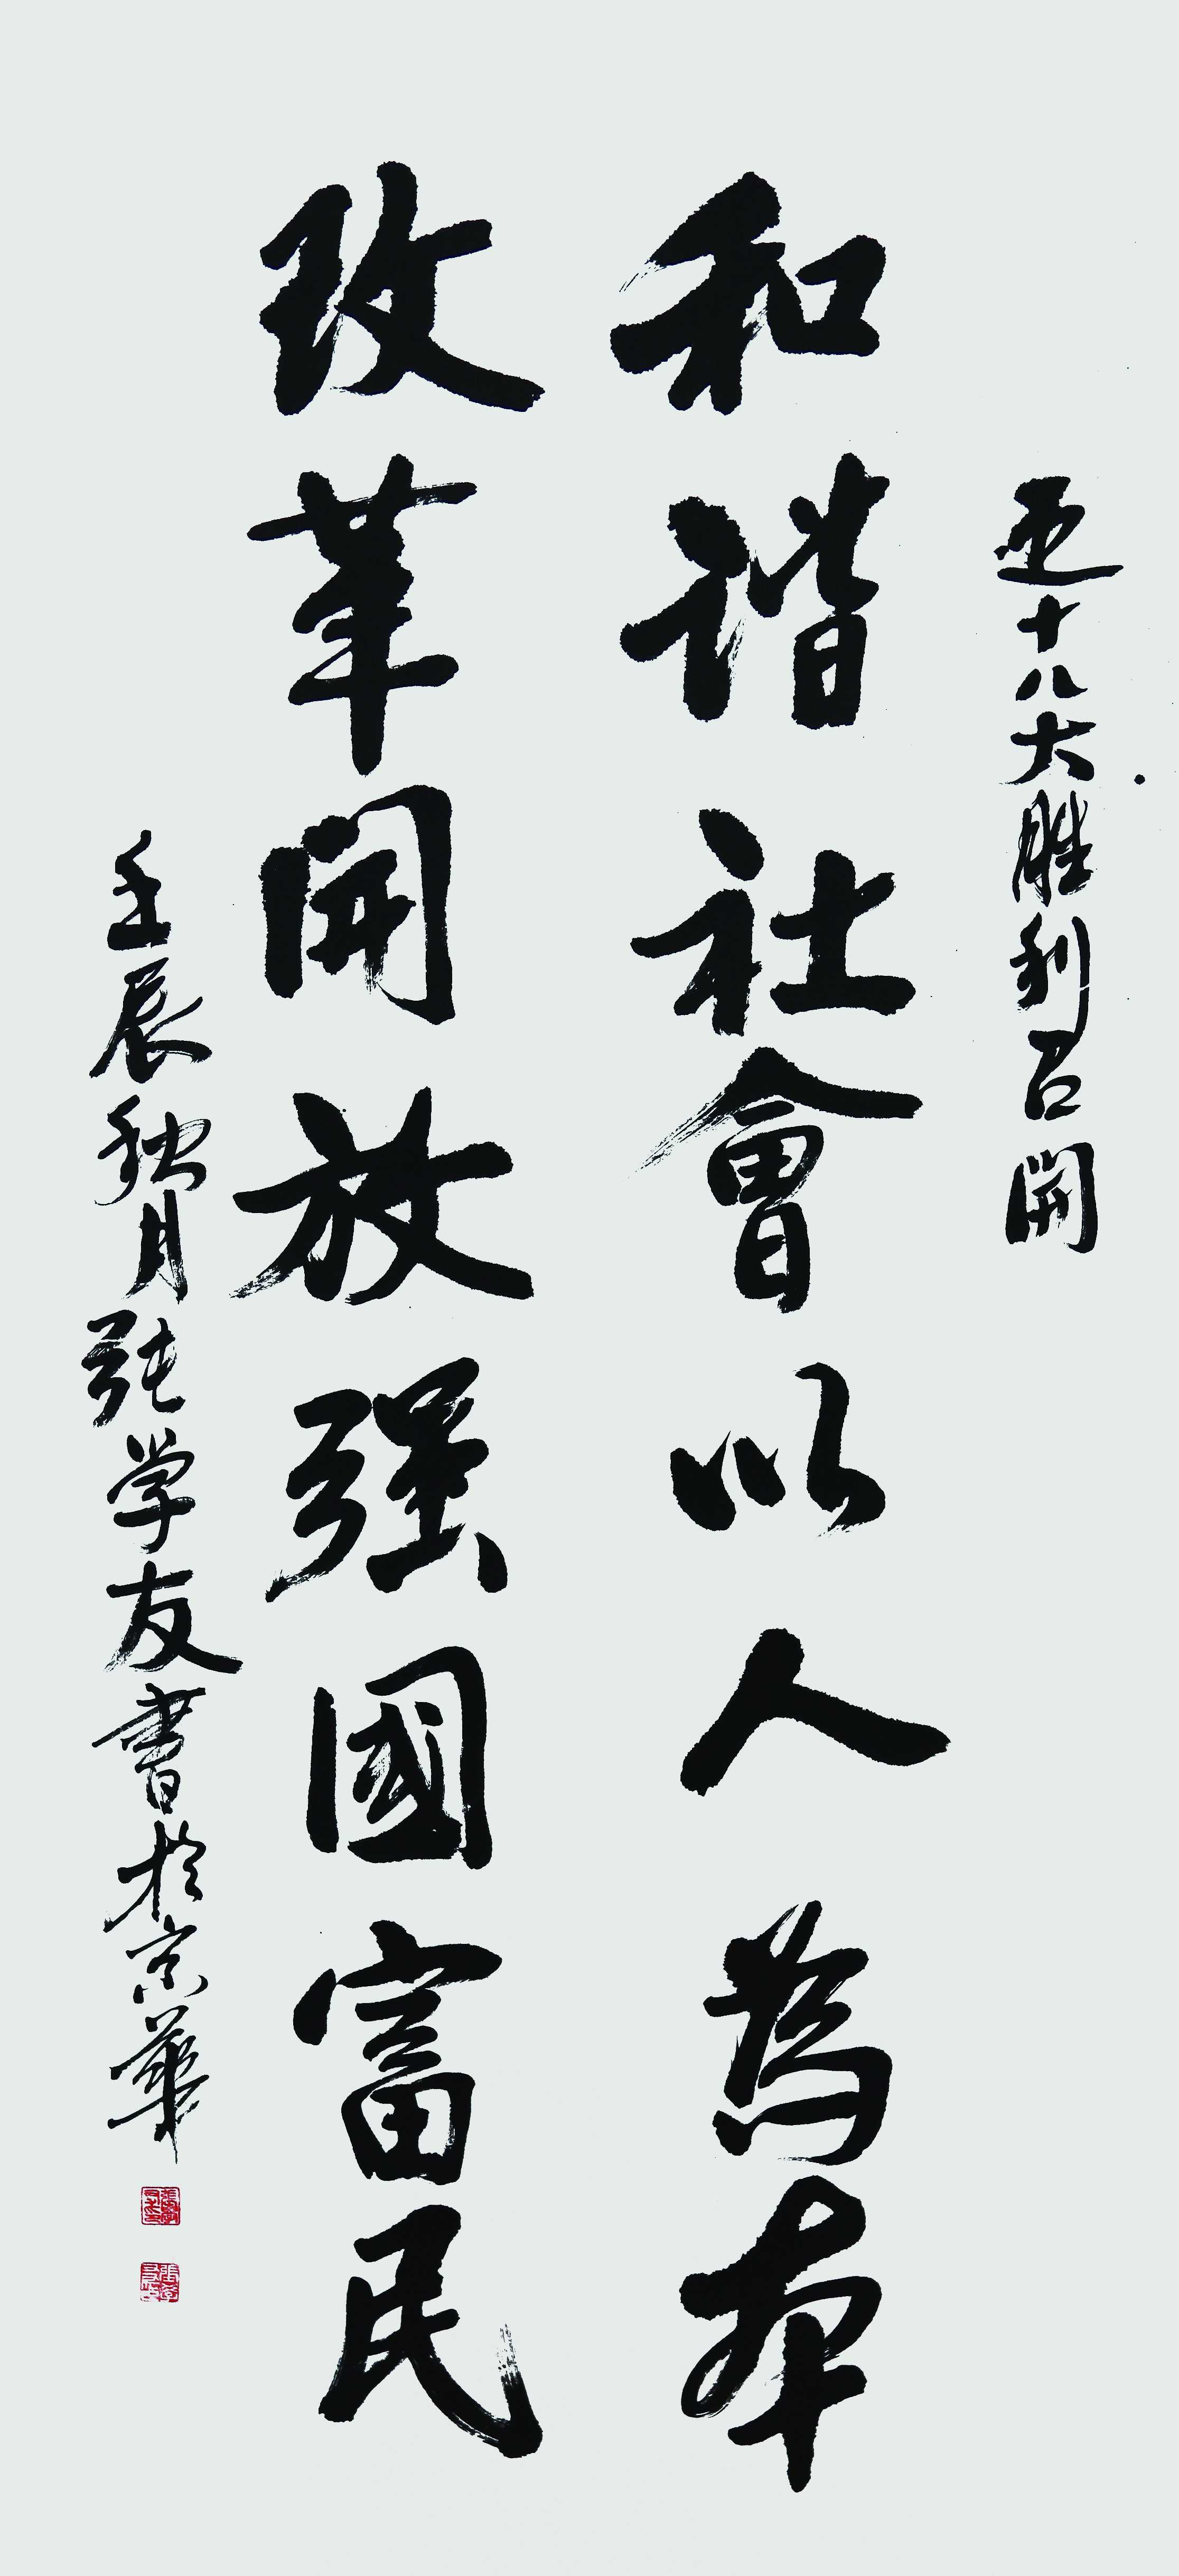 迎十八大胜利召開
和谐社會以人為本
改革開放强國富民
壬辰秋月张学友書於京華